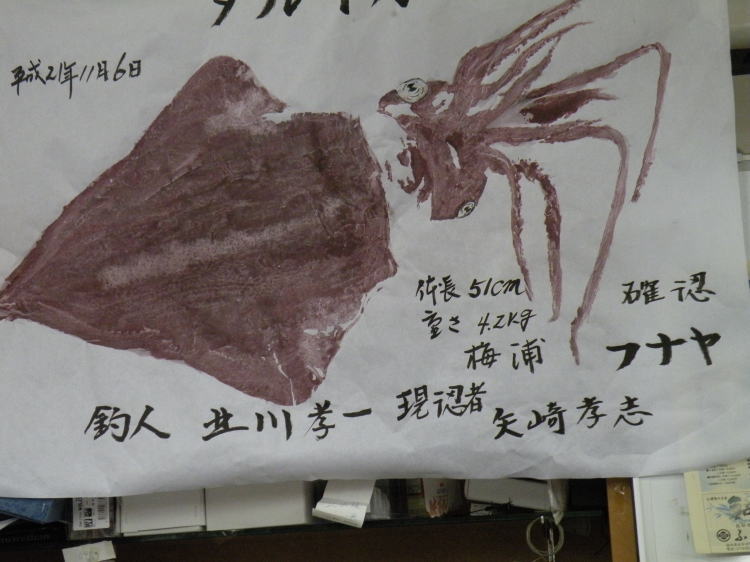 タルイカ
平成21年11月6日
体長 51cm
重さ 4.2kg
梅浦
確認
フナヤ
釣人 北川孝一 現認者 矢崎孝志